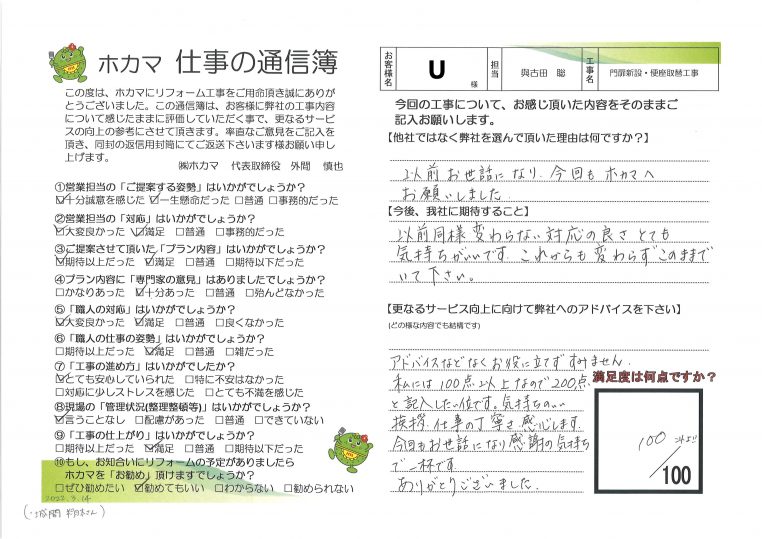 ホカマ 仕事の通信簿
この度は、ホカマにリフォーム工事をご用命頂き誠にありが
とうございました。この通信簿は、お客様に弊社の工事内容
について感じたままに評価していただく事で、更なるサービ
スの向上の参考にさせて頂きます。率直なご意見をご記入を
頂き、同封の返信用封筒にてご返送下さいます様お願い申し
上げます。
㈱ホカマ 代表取締役 外間 慎也
①営業担当の「ご提案する姿勢」はいかがでしょうか?
☑十分誠意を感じた ☑一生懸命だった □普通 □事務的だった
②営業担当の「対応」はいかがでしょうか?
☑大変良かった ☑満足 □普通 □事務的だった
③ご提案させて頂いた「プラン内容」はいかがでしょうか?
☑期待以上だった ☑満足 □普通 □期待以下だった
④プラン内容に「専門家の意見」はありましたでしょうか?
□かなりあった ☑十分あった □普通 □殆んどなかった
⑤「職人の対応」はいかがでしょうか?
☑大変良かった ☑満足 □普通 □良くなかった
⑥「職人の仕事の姿勢」はいかがでしょうか?
□期待以上だった ☑満足 □普通 □雑だった
⑦「工事の進め方」はいかがでしたか?
☑とても安心していられた □特に不安はなかった
□対応に少しストレスを感じた □とても不満を感じた
⑧現場の「管理状況(整理整頓等)」はいかがでしょうか?
☑言うことなし □配慮があった □普通 □できていない
⑨「工事の仕上がり」はいかがでしょうか?
□期待以上だった ☑満足 □普通 □期待以下だった
⑩もし、お知合いにリフォームの予定がありましたら
ホカマを「お勧め」頂けますでしょうか?
□ぜひ勧めたい ☑勧めてもいい □わからない □勧められない
2022.3.14
お客様名 U 様 担当 與古田 聡 工事名 門扉新設・便座取替工事
今回の工事について、お感じ頂いた内容をそのままご
記入お願いします。
【他社ではなく弊社を選んで頂いた理由は何ですか?】
以前お世話になり、今回もホカマへ
お願いしました。
【今後、我社に期待すること】
以前同様変わらない対応の良さとても
気持ちがいいです。これからも変わらずこのままで
いて下さい。
【更なるサービス向上に向けて弊社へのアドバイスを下さい】
(どの様な内容でも結構です)
アドバイスなどなくお役に立てずすみません。
私には100点以上なので200点
と記入したい位です。気持ちのいい
挨拶、仕事の丁寧さ感心します。
今回もお世話になり感謝の気持ち
で一杯です。
ありがとうございました。
満足度は何点ですか?
100
/100